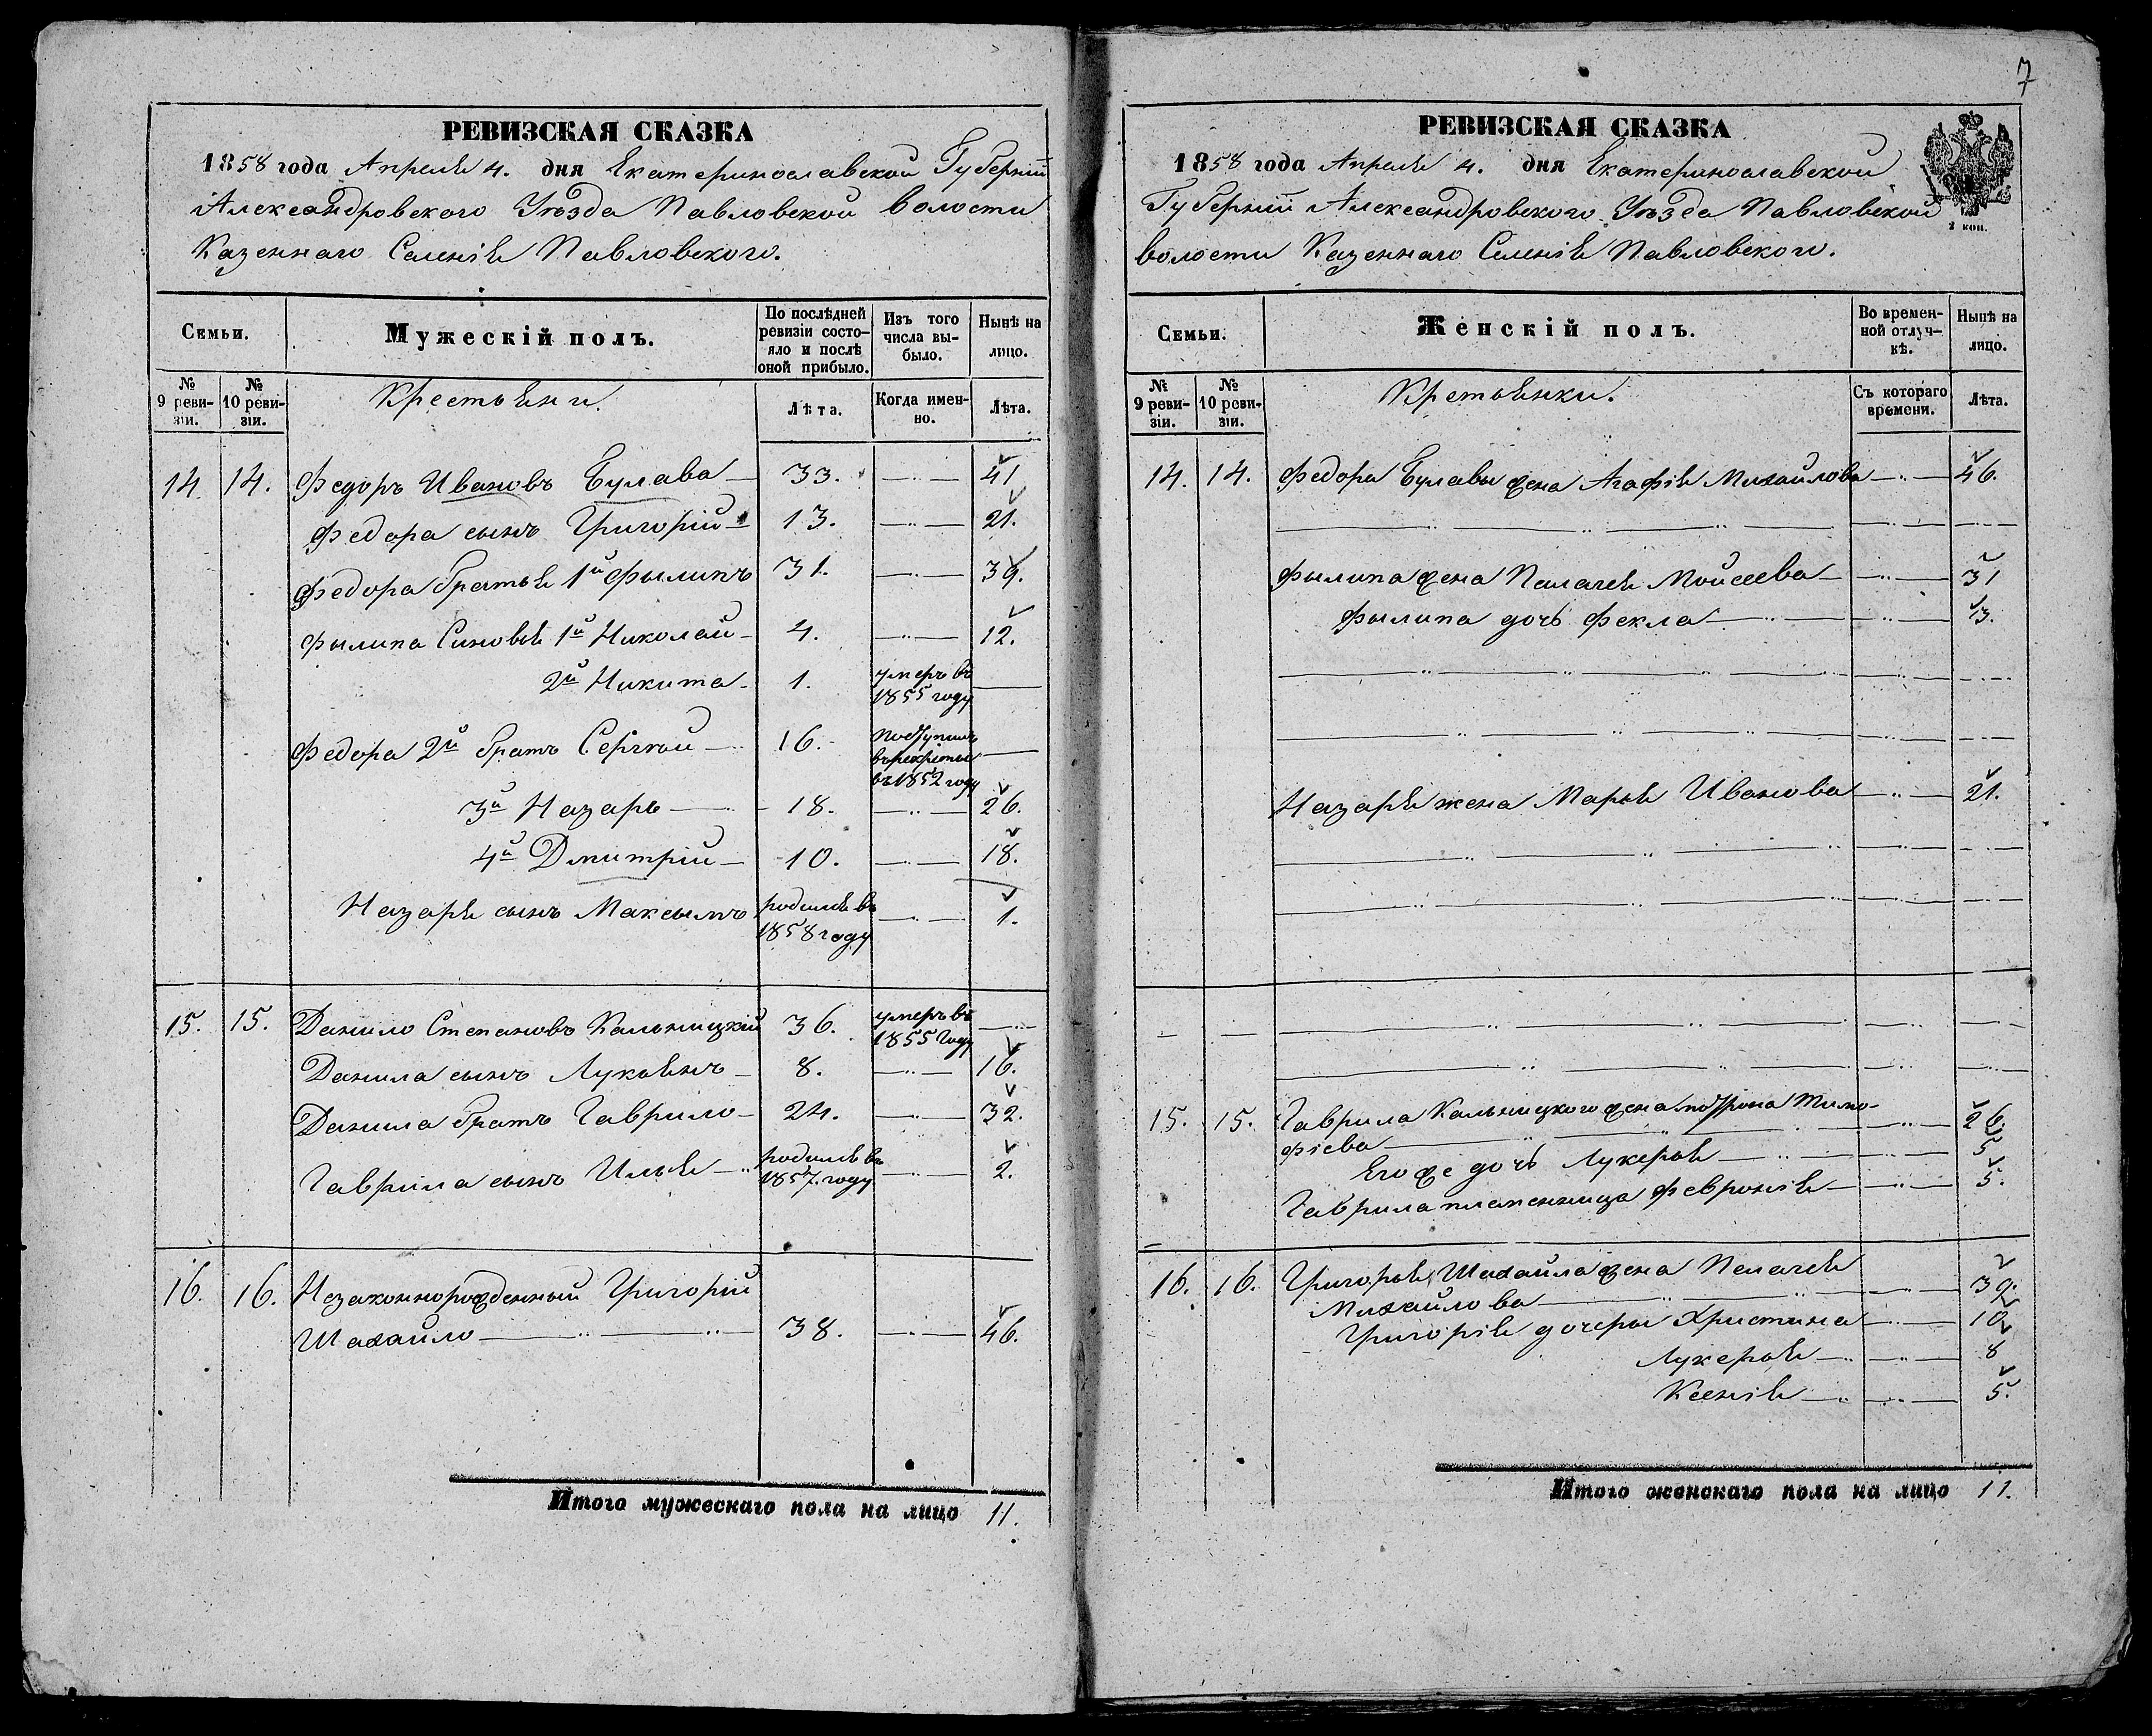 РЕВИЗСКАЯ СКАЗКА
1858 года Апреля 4. дня Екатеринославской Губерніи
Александровского Уѣзда Павловской волости
Казеннаго Селенія Павловского.
Семьи.
Мужескій полъ.
По послѣдней
ревизіи состо-
яло и послѣ
оной прибыло.
Изъ того
числа вы-
было.
Нынѣ на
лицо.
№
9 реви-
зіи.
№
10 реви-
зіи.
Крестьяни.
Лѣта.
Когда имен-
но.
Лѣта.
14. 14. Федоръ Ивановъ Булава 33. 41
Федора сынъ Григорій 13. 21.
Федора братья 1й Фылипъ 31. 39.
Фылипа Синовья 1й Николай 4. 12.
2й Никита 1. умеръ въ
1855 году
Федора 2й братъ Сергѣй 16. Поступилъ
въ рекруты
въ 1852 году
3й Назарь 18. 26.
4й Дмитрій 10. 18.
Назаря сынъ Максымъ родился въ
1858 году 1.
15. 15. Данило Степановъ Кальницкій 36. умеръ въ
1855 Году
Данила сынъ Лукьянъ 8. 16.
Данила братъ Гаврило 24. 32.
Гаврила сынъ Илья родился въ
1857. году 2.
16. 16. Незаконнорожденный Григорій
Шахайло 38. 46.
Итого мужескаго пола на лицо 11.
7
РЕВИЗСКАЯ СКАЗКА
1858 года Апреля 4. дня Екатеринославской
Губерніи Александровского Уѣзда Павловской
волости Казеннаго Селенія Павловского.
2 коп.
Семьи.
Женскій полъ.
Во времен-
ной отлуч-
кѣ.
Нынѣ на
лицо.
№
9 реви-
зіи.
№
10 реви-
зіи.
Кретьянки.
Съ котораго
времени.
Лѣта.
14. 14. Федора Булавы жена Агафія Михайлова 46.
Фылипа жена Пелагея Мойсеева 31
Фылипа дочь Фекла 13.
Назаря жена Марья Иванова 21.
15. 15. Гаврила Кальницкого жена Мотрона Тимо-
фіева 26.
Его же дочь Лукерья 5
Гаврила племенница Февронія 5.
16. 16. Григорья Шахайла жена Пелагея
Михайлова 39.
Григорія дочеры Христина 10
Лукерья 8
Ксенія 5.
Итого женскаго пола на лицо 11.